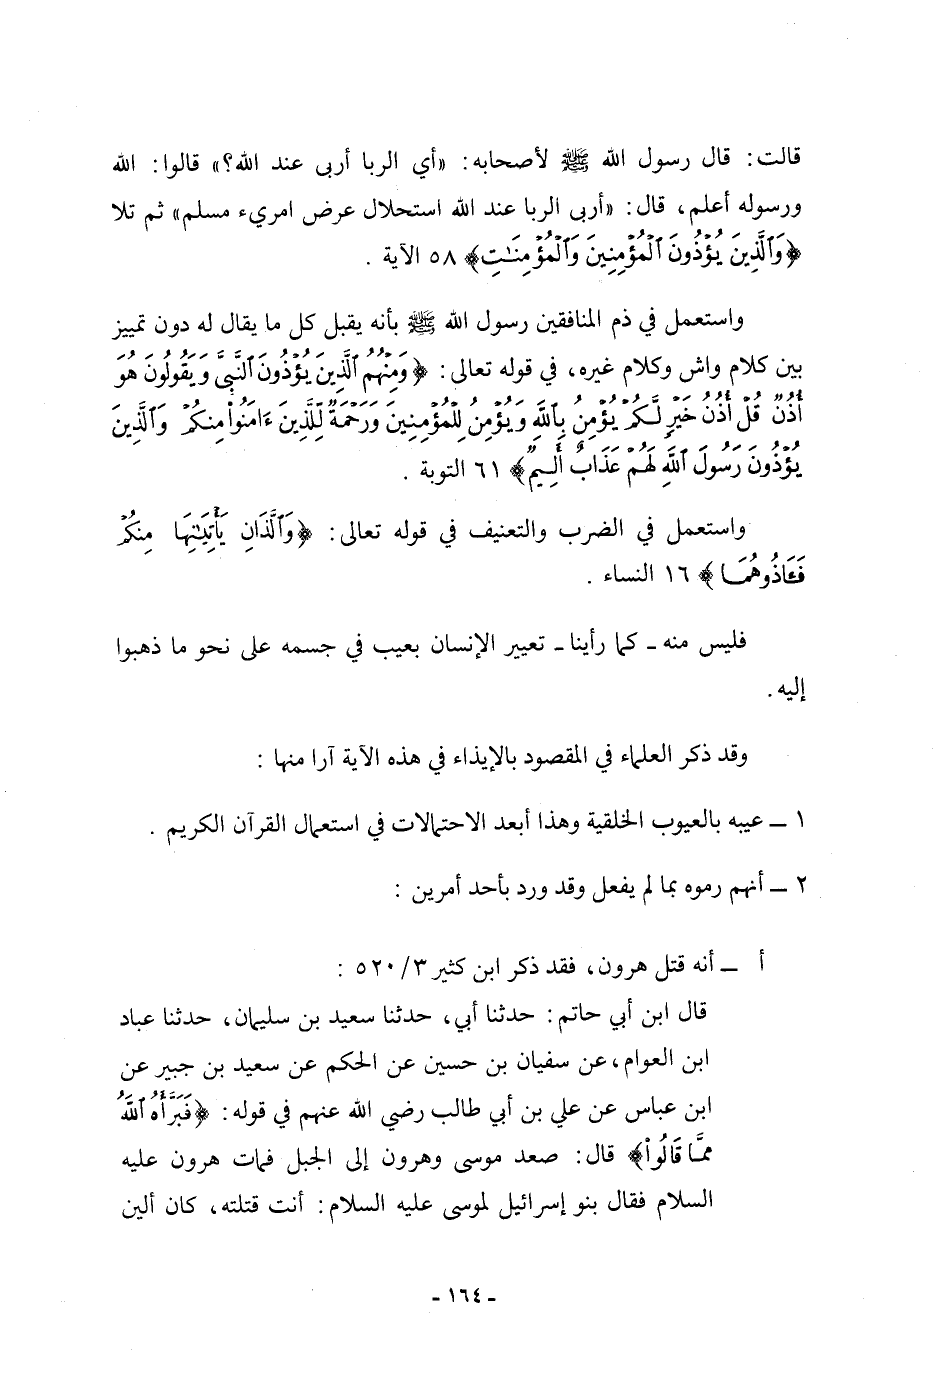 قالت: قال رسول الله ﷺ لأصحابه: «أي الربا أربى عند الله؟» قالوا: الله
ورسوله أعلم، قال: «أربى الربا عند الله استحلال عرض امريء مسلم» ثم تلا
﴿وَٱلَّذِينَ يُؤْذُونَ ٱلْمُؤْمِنِينَ وَٱلْمُؤْمِنَٰتِ﴾ ٥٨ الآية .
واستعمل في ذم المنافقين رسول الله ﷺ بأنه يقبل كل ما يقال له دون تمييز
بين كلام واش وكلام غيره، في قوله تعالى: ﴿وَمِنْهُمُ ٱلَّذِينَ يُؤْذُونَ ٱلنَّبِيَّ وَيَقُولُونَ هُوَ
أُذُنٌ قُلْ أُذُنُ خَيْرٍ لَّكُمْ يُؤْمِنُ بِٱللَّهِ وَيُؤْمِنُ لِلْمُؤْمِنِينَ وَرَحْمَةٌ لِّلَّذِينَ ءَامَنُوا۟ مِنكُمْ وَٱلَّذِينَ
يُؤْذُونَ رَسُولَ ٱللَّهِ لَهُمْ عَذَابٌ أَلِيمٌ﴾ ٦١ التوبة .
واستعمل في الضرب والتعنيف في قوله تعالى: ﴿وَٱلَّذَانِ يَأْتِيَٰنِهَا مِنكُمْ
فَـَٔاذُوهُمَا﴾ ١٦ النساء .
فليس منه ـ كما رأينا ـ تعيير الإنسان بعيب في جسمه على نحو ما ذهبوا
إليه.
وقد ذكر العلماء في المقصود بالإيذاء في هذه الآية آرا منها :
١ ـ عيبه بالعيوب الخلقية وهذا أبعد الاحتمالات في استعمال القرآن الكريم .
٢ ـ أنهم رموه بما لم يفعل وقد ورد بأحد أمرين :
أ ـ أنه قتل هرون، فقد ذكر ابن كثير ٥٢٠/٣ :
قال ابن أبي حاتم: حدثنا أبي، حدثنا سعيد بن سليمان، حدثنا عباد
ابن العوام، عن سفيان بن حسين عن الحكم عن سعيد بن جبير عن
ابن عباس عن علي بن أبي طالب رضي الله عنهم في قوله: ﴿فَبَرَّأَهُ ٱللَّهُ
مِمَّا قَالُوا۟﴾ قال: صعد موسى وهرون إلى الجبل فمات هرون عليه
السلام فقال بنو إسرائيل لموسى عليه السلام: أنت قتلته، كان ألين
ـ ١٦٤ ـ